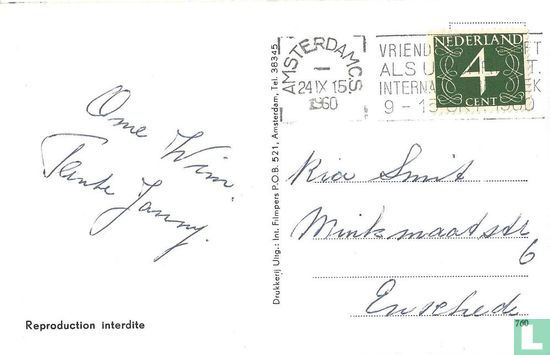 Ome Wim
Tante Janny.
Reproduction interdite
Drukkerij Uitg.: Int. Filmpers P.O.B. 521, Amsterdam, Tel. 38345
AMSTERDAM CS
24 IX 15
1960
VRIEND
ALS U
INTERNA
9 - 15 OKT. 1960
NEDERLAND
4
CENT
Ria Smit
Minkmaatstr
6
Enschede
760
LastDodo